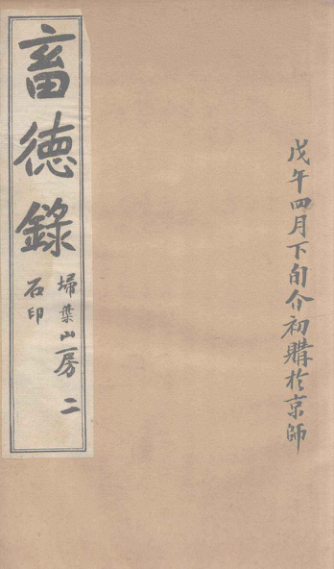 戊午四月下旬介初購於京師
畜德錄
埽葉山房
石印
二